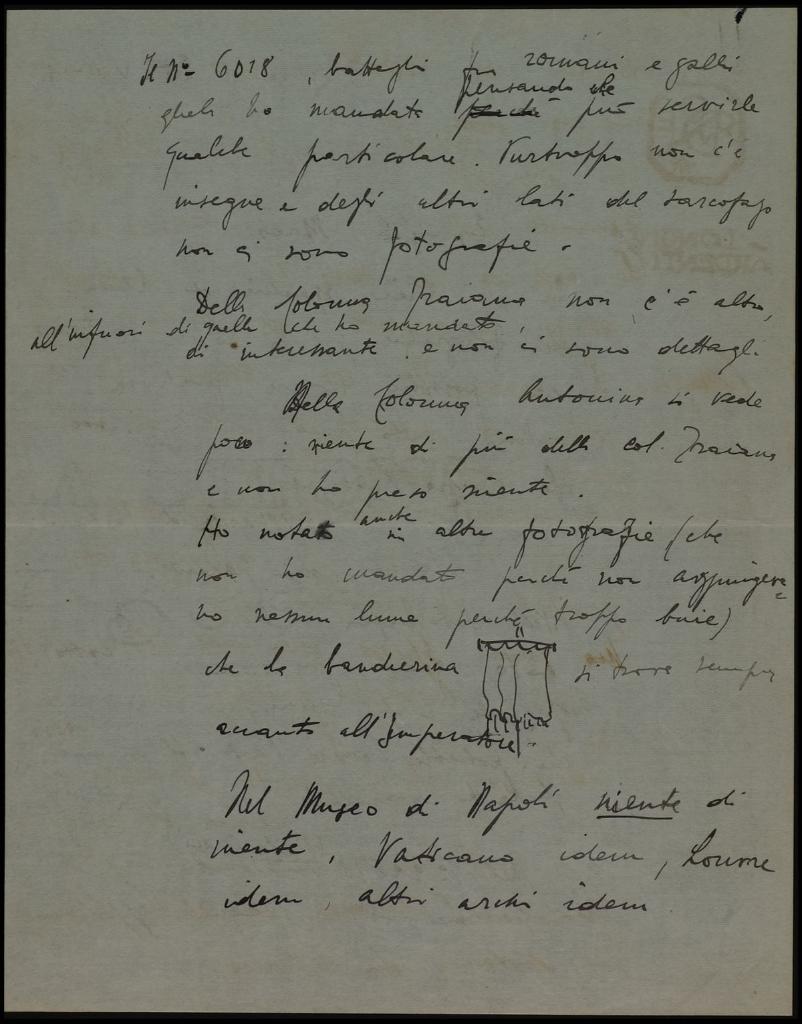 Il Nº 6018, battaglia fra romani e galli
glieli ho mandata perché pensando che può servirle
qualche particolare. Purtroppo non c'è
insegne e degli altri lati del sarcofago
non ci sono fotografie.
Della Colonna Traiana non c'è altro,
all'infuori di quelle che ho mandato,
di interessante, e non ci sono dettagli.
Della Colonna Antonina si vede
poco: niente di più della col. Traiana
e non ho preso niente.
Ho notato anche in altre fotografie (che
non ho mandato perché non aggiungeva=
no nessun lume perché troppo buie)
che la banderina si trova sempre
accanto all'Imperatore.
Nel Museo di Napoli niente di
niente, Vaticano idem, Louvre
idem, altri archi idem